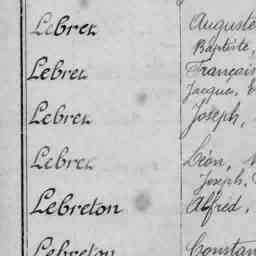 Lebret Auguste
Baptiste,
Lebret François
Jacques,
Lebret Joseph,
Lebret Léon,
Joseph,
Lebreton Alfred,
Lebreton Constan